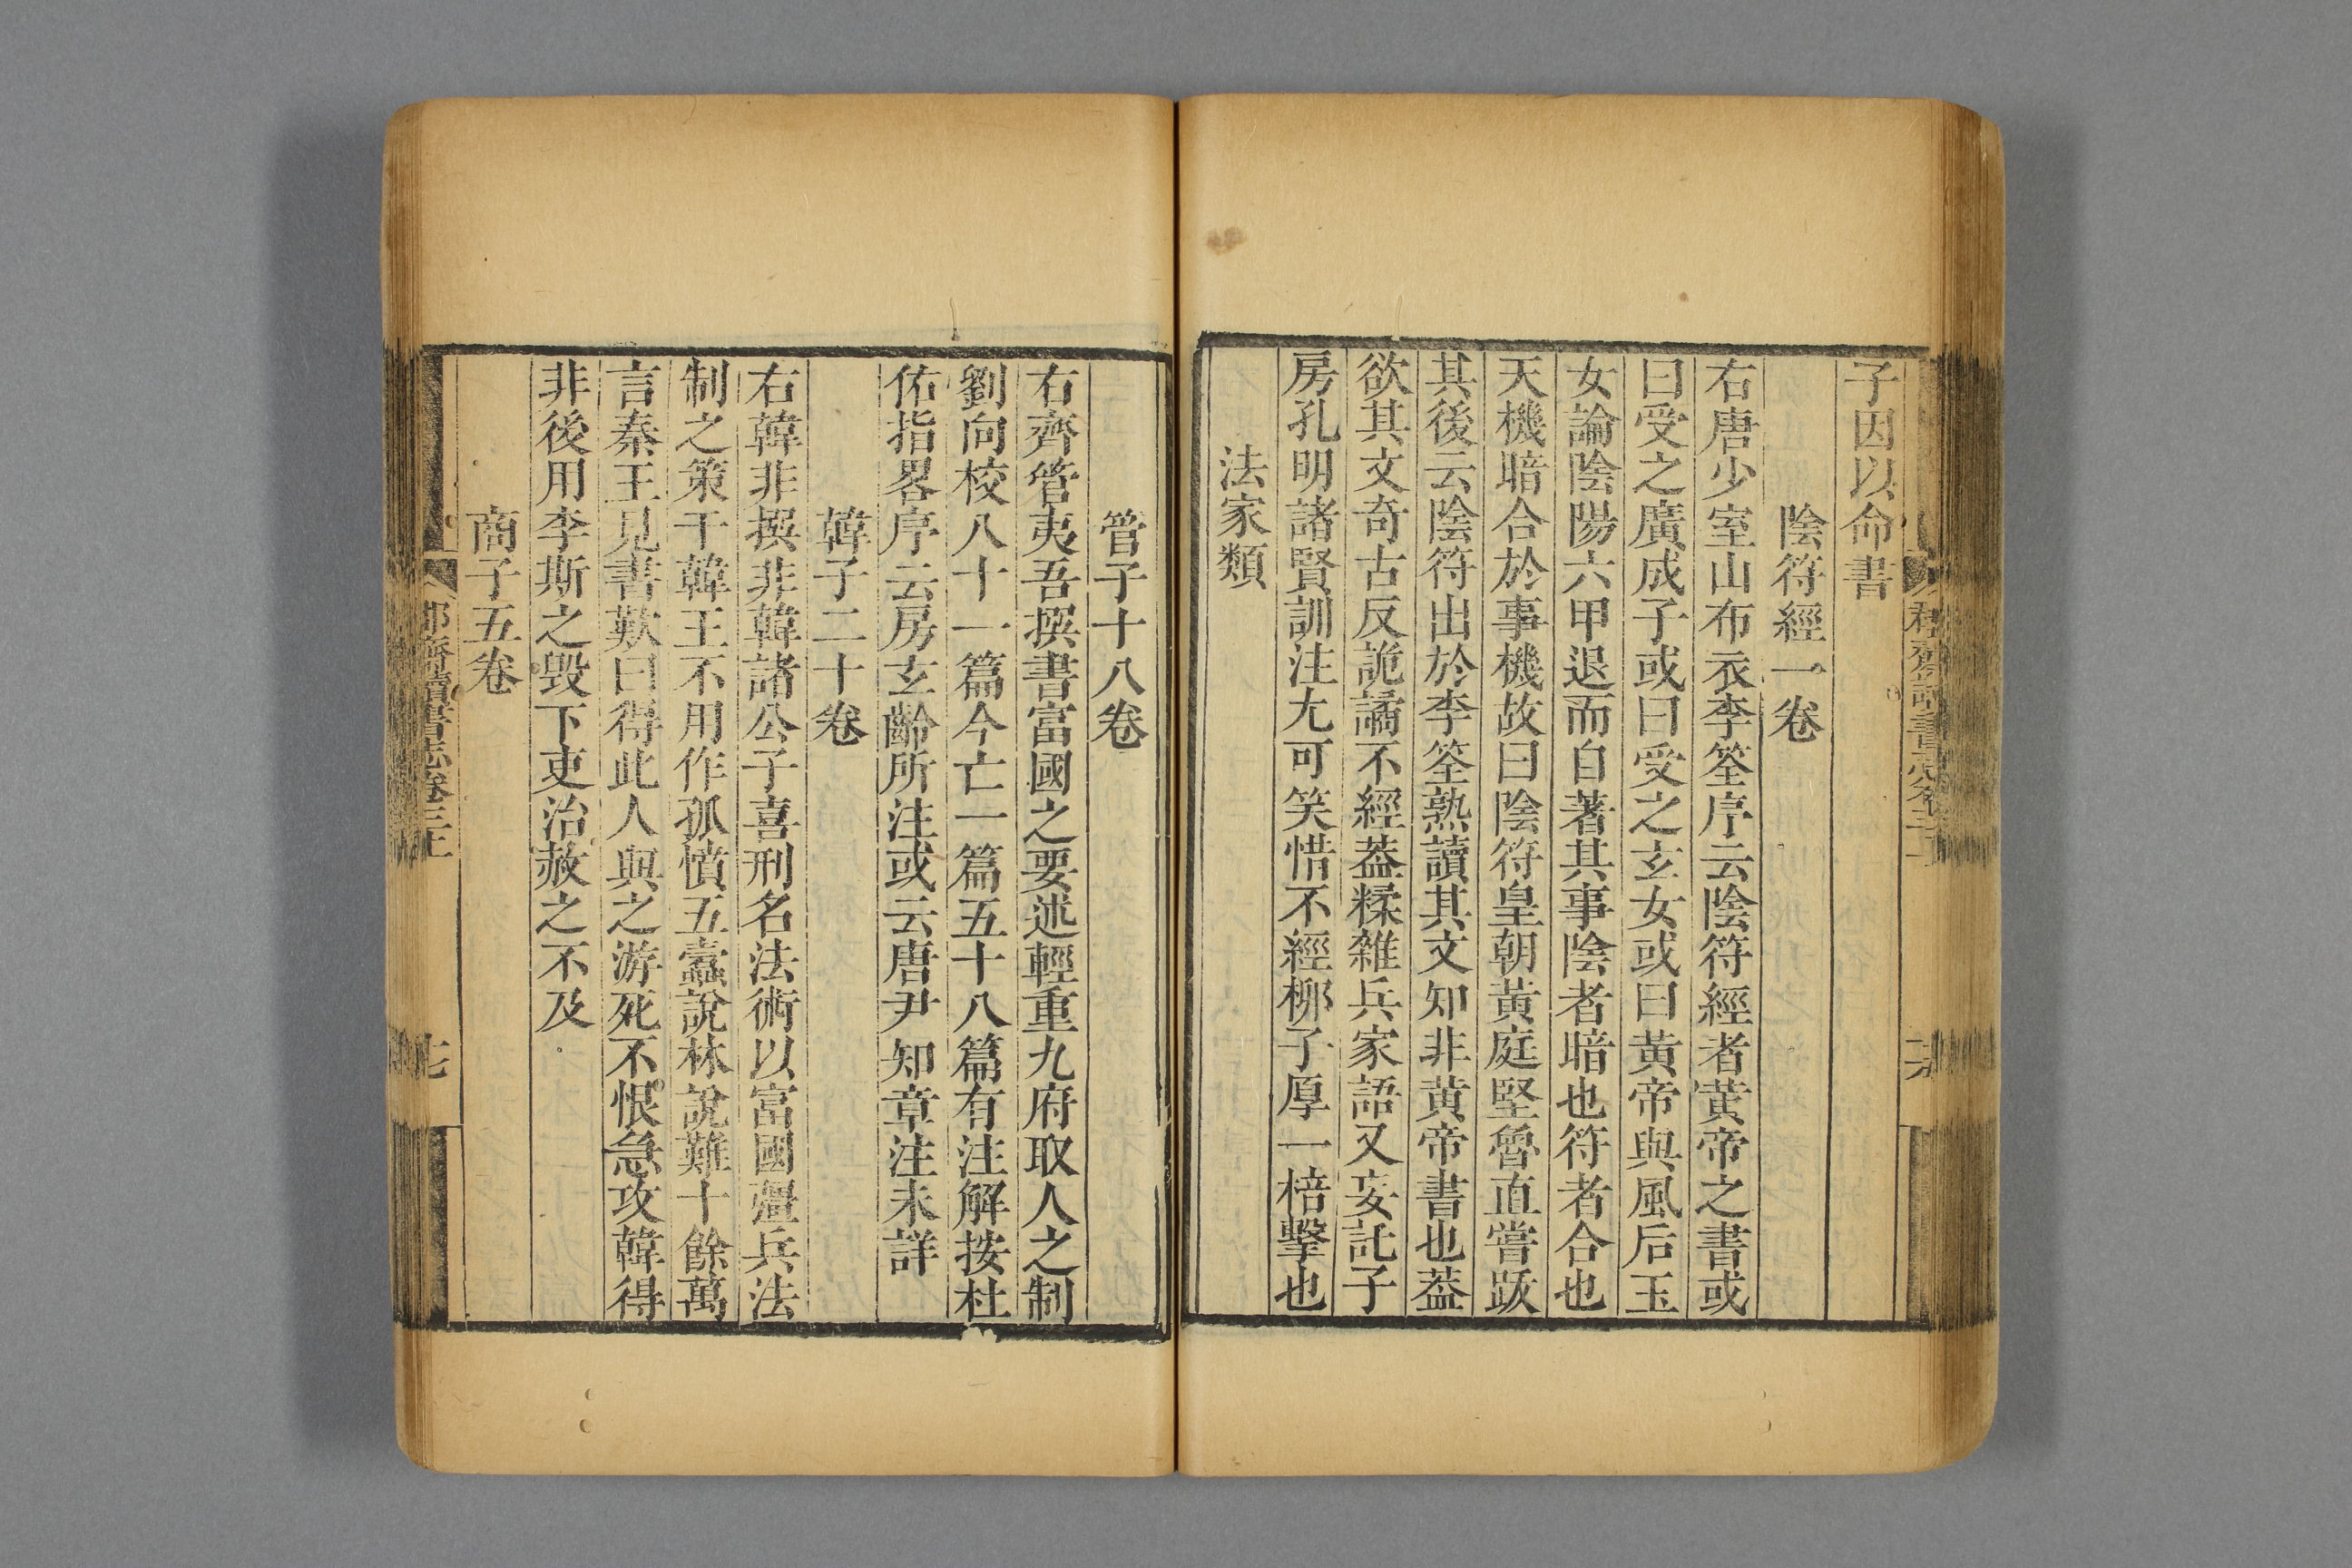 子因以命書
陰符經一卷
右唐少室山布衣李筌序云陰符經者黃帝之書或
曰受之廣成子或曰受之玄女或曰黃帝與風后玉
女論陰陽六甲退而自著其事陰者暗也符者合也
天機暗合於事機故曰陰符皇朝黃庭堅魯直嘗跋
其後云陰符出於李筌熟讀其文知非黃帝書也葢
欲其文奇古反詭譎不經葢糅雜兵家語又妄託子
房孔明諸賢訓注尢可笑惜不經柳子厚一棓擊也
法家類
管子十八卷
右齊管夷吾撰書富國之要述輕重九府取人之制
劉向校八十一篇今亡一篇五十八篇有注解按杜
佑指畧序云房玄齡所注或云唐尹知章注未詳
韓子二十卷
右韓非撰非韓諸公子喜刑名法術以富國彊兵法
制之策干韓王不用作孤憤五蠹說林說難十餘萬
言秦王見書歎曰得此人與之游死不恨急攻韓得
非後用李斯之毀下吏治赦之不及
商子五卷
郡齋讀書志卷三上